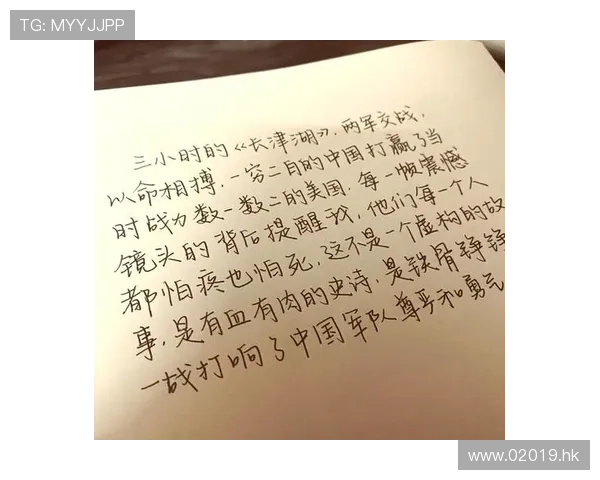 TG: MYYJJPP
三小时的《长津湖》,两军交战,
以命相搏,一穷二白的中国打赢了当
时战力数一数二的美国,每一帧震撼
镜头的背后提醒我,他们每一个人
都怕疼也怕死,这不是一个虚构的故
事,是有血有肉的史诗,是铁骨铮铮
一战打响了中国军队尊严和勇气
www.02019.hk